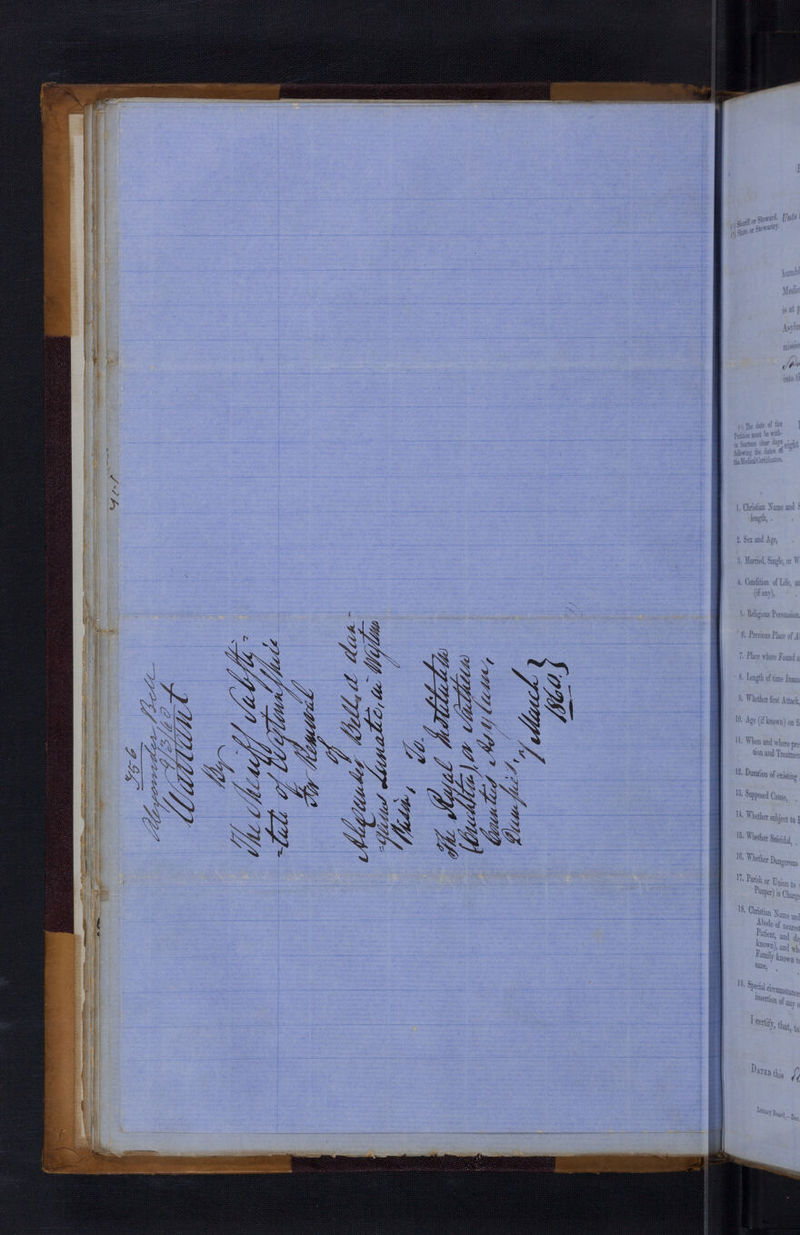 756
Alexander Bell
9/3/60
Warrant
By
The Sheriff Substi-
-tute of Wigtownshire
For Removal
of
Alexander Bell, a dan-
-gerous Lunatic, in Wigton
Shire, To
The Royal Institution
(Crichton) or Southern
Counties Asylum,
Dumfries.
7 March
1860.
(1) Sheriff or Steward.
(2) Shire or Stewartry.
Unto
Medic
is at p
Asylu
mission
into th
(3) The date of the
Petition must be with-
in fourteen clear days
following the dates of
the Medical Certificates.
eight
1. Christian Name and S
length, .
2. Sex and Age,
3. Married, Single, or W
4. Condition of Life, an
(if any),
5. Religious Persuasion,
6. Previous Place of A
7. Place where Found a
8. Length of time Insan
9. Whether first Attack,
10. Age (if known) on fi
11. When and where pre
tion and Treatment
12. Duration of existing
13. Supposed Cause, .
14. Whether subject to E
15. Whether Suicidal, .
16. Whether Dangerous
17. Parish or Union to
Pauper) is Charge
18. Christian Name and
Abode of nearest
Patient, and de
known), and whe
Family known to
sane, .
19. Special circumstance
insertion of any o
I certify, that, to
DATED this
Lunacy Board,—